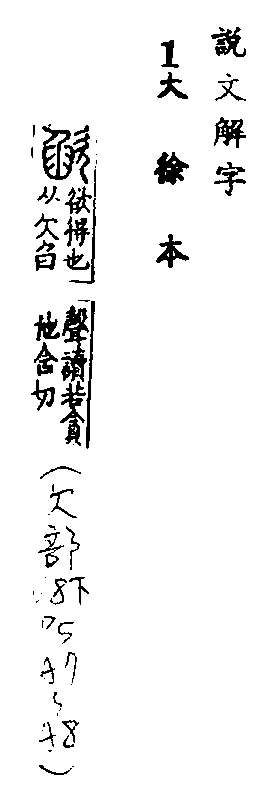 說文解字
1大徐本
欲得也
从欠臽
聲讀若貪
他含切
(欠部
8下